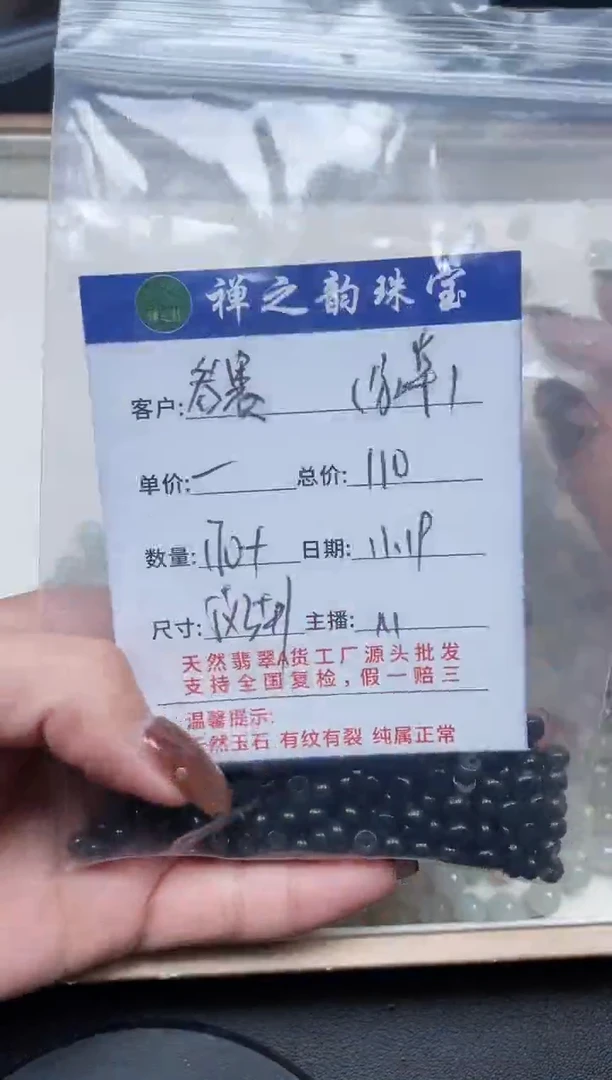 禅之韵珠宝
客户:
单价: 一 总价: 110
数量: 170+ 日期: 11.19
尺寸: 主播: M
天然翡翠A货工厂源头批发
支持全国复检,假一赔三
温馨提示:
天然玉石 有纹有裂 纯属正常